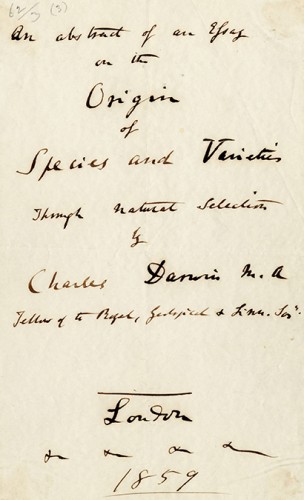 (3)
An abstract of an Essay
on the
Origin
of
Species and Varieties
Through natural Selection
by
Charles Darwin M.A
Fellow of the Royal, Geological & Linn. Socy.
London
& & & &
1859